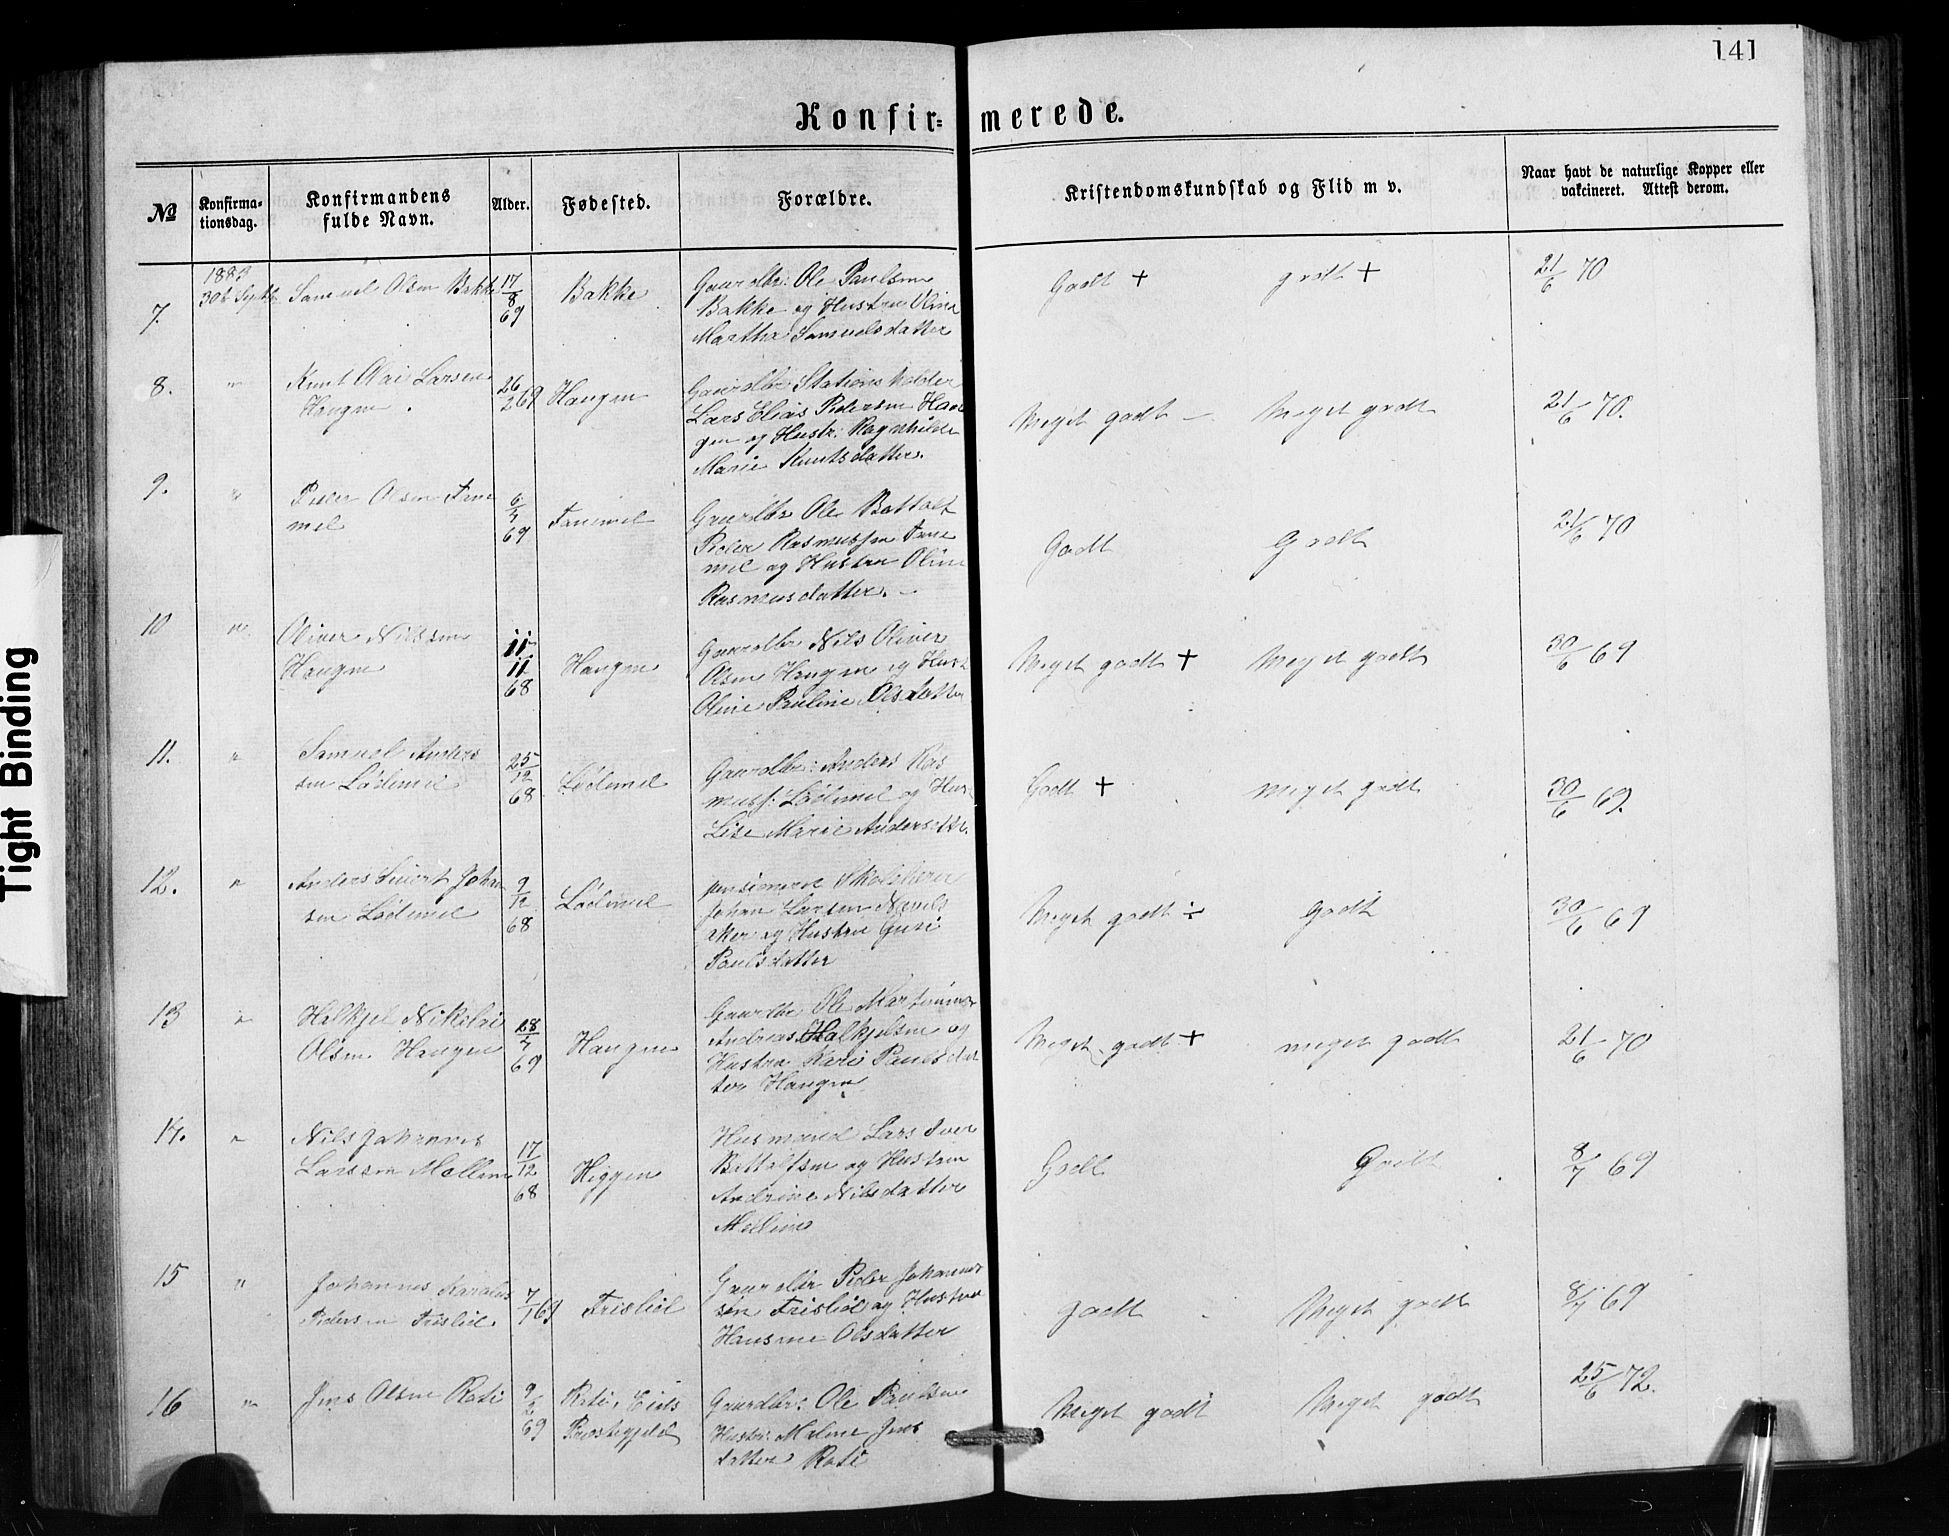 141
Konfir=merede.
No
Konfirma-
tionsdag.
Konfirmandens
fulde Navn.
Alder.
Fødested.
Forældre.
Kristendomskundskab og Flid m v.
Naar havt de naturlige Kopper eller
vakcineret. Attest derom.
1883
7. 30t Septbr Samuel Olsen Bakke 17/8 69 Bakke
Gaardbr: Ole Paulsen
Bakke og Hustru Oline
Martha Samuelsdatter
Godt + godt + 21/6 70
8. " Knut Olai Larsen
Haugen 26/2 69 Haugen
Gaardbr: Stationsholder
Lars Elias Pedersen Hau
gen og Hustr: Ragnhilde
Marie Knutsdatter.
Meget godt - Meget godt 21/6 70.
9. " Peder Olsen
mel 69
Gaardbr Ole
Peder Rasmussen
mel og Hustru Oline
Rasmusdatter. -
Godt Godt 21/6 70
10 " Oliver Nilssen
Haugen 11/11 68 Haugen
Gaardbr Nils Oliver
Olsen Haugen og Hust
Oline Pauline Olsdatter
Meget godt + Meget godt 30/6 69
11. " Samuel Anders
sen Lødemel 25/12 68 Lødemel
Gaardbr: Anders Ras
muss: Lødemel og Hus
Lise Marie Andersdtr.
Godt + meget godt 30/6 69.
12. " Anders Sivert Johan
sen Lødemel 9/12 68 Lødemel
pensioneret Skolelærer
Johan Larsen
aker og Hustru Guri
Paulsdatter
Meget godt ÷ Godt 30/6 69
13 " Halkjel Nikolai
Olsen Haugen 28/4 69 Haugen
Gaardbr Ole Martinus
Andreas Halkjelsen og
Hustru Kari Paulsdat
ter Haugen
Meget godt + meget godt 21/6 70
14. " Nils Johannes
Larssen 17/12 68 Higgen
Husmand Lars Iver
og Hustru
Andrine Nilsdatter
Godt Godt 8/7 69
15 " Johannes Karolus
Pedersen Frislid 7/1 69 Frislid
Gaardbr Peder Johannes
sen Frislid og Hustru
Hansine Olsdatter
godt Meget godt 8/7 69
16 " Jens Olsen 9/2 69 Eids
Præstegjeld
Gaardbr: Ole Paulsen
Hustr: Malene Jens
datter
Meget godt Meget godt 25/6 72.
Tight Binding